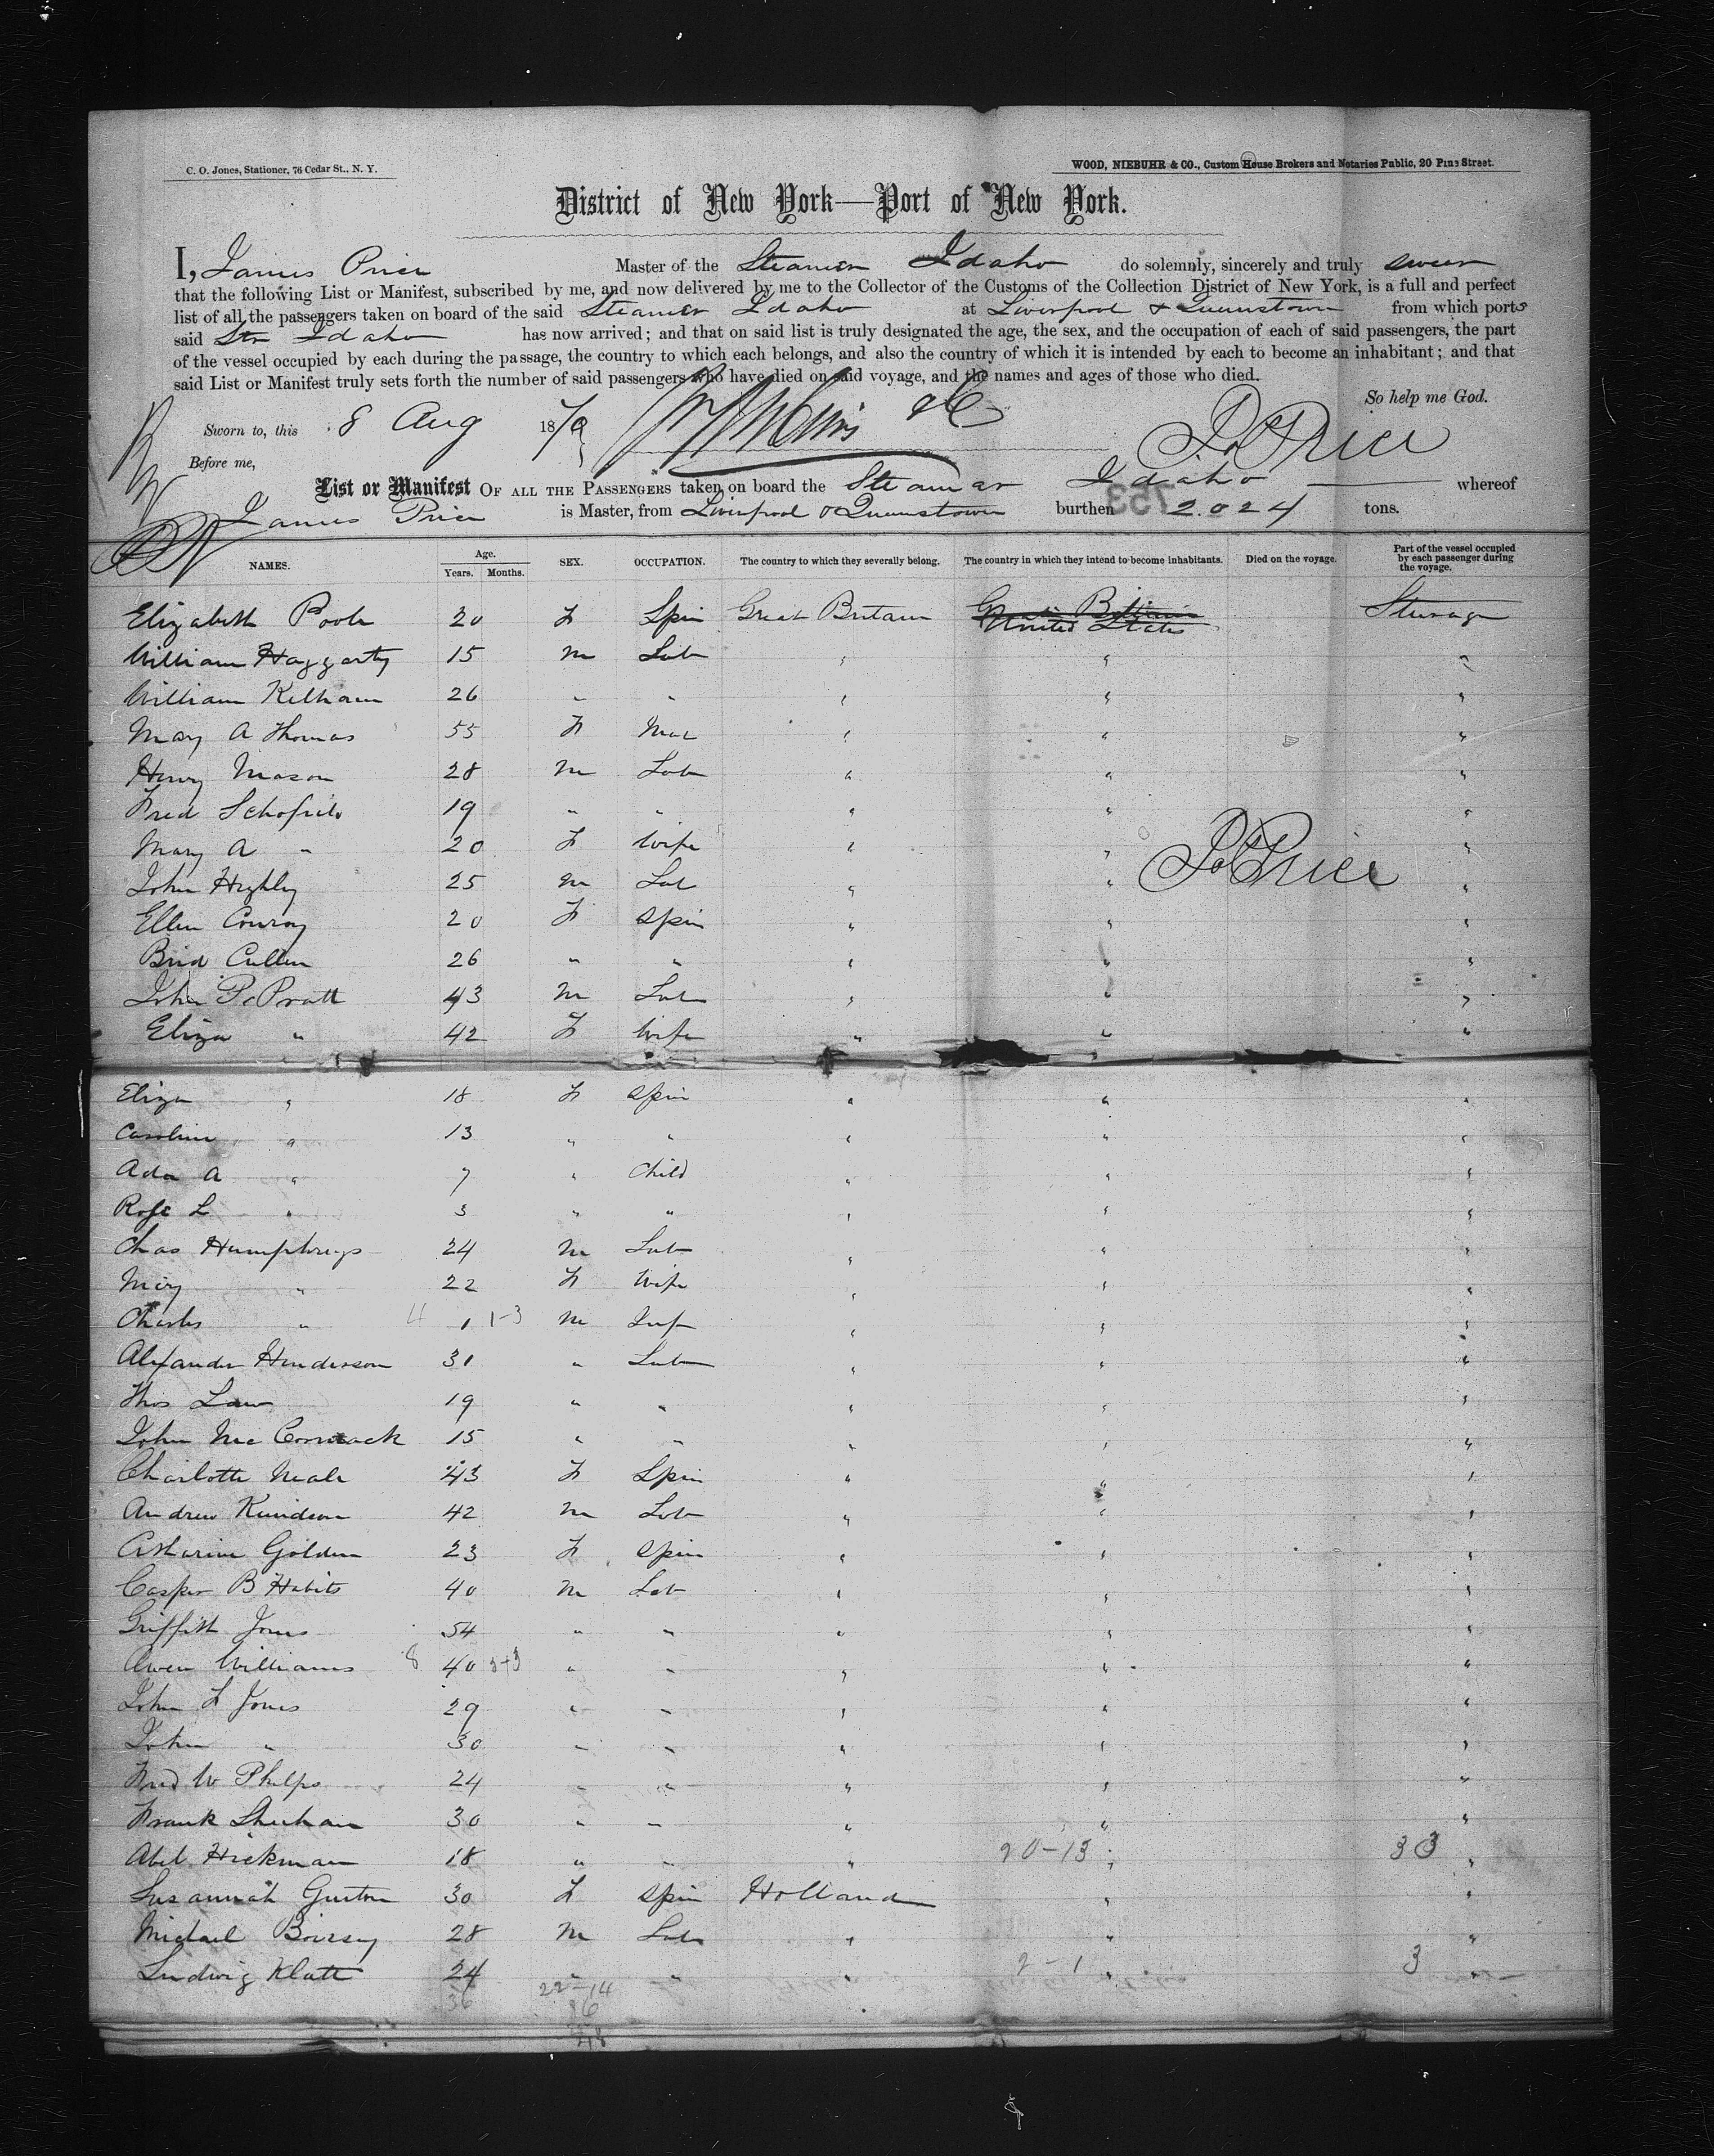 C. O. Jones, Stationer, 76 Cedar St., N. Y.
WOOD, NIEBUHR & CO., Custom House Brokers and Notaries Public, 20 Pine Street.
District of New York—Port of New York.
I, James Price Master of the Steamer Idaho do solemnly, sincerely and truly swear
that the following List or Manifest, subscribed by me, and now delivered by me to the Collector of the Customs of the Collection District of New York, is a full and perfect
list of all the passengers taken on board of the said Steamer Idaho at Liverpool & Queenstown from which ports
said Str Idaho has now arrived; and that on said list is truly designated the age, the sex, and the occupation of each of said passengers, the part
of the vessel occupied by each during the passage, the country to which each belongs, and also the country of which it is intended by each to become an inhabitant; and that
said List or Manifest truly sets forth the number of said passengers who have died on said voyage, and the names and ages of those who died.
So help me God.
Sworn to, this 8 Aug 1879
Jas Price
Before me,
List or Manifest OF ALL THE PASSENGERS taken on board the Steamer Idaho whereof
James Price is Master, from Liverpool & Queenstown burthen 2.024 tons.
753
NAMES. Age. Years. Months. SEX. OCCUPATION. The country to which they severally belong. The country in which they intend to become inhabitants. Died on the voyage. Part of the vessel occupied by each passenger during the voyage.
Elizabeth Poole 20 F Spin Great Britain Great Britain United States Steerage
William Haggarty 15 M Lab " " "
William Kelham 26 " " " " "
Mary A Thomas 55 F " " "
Henry Mason 28 M Lab " " "
Fred Schofield 19 " " " " "
Mary A " 20 F Wife " " "
John Highley 25 M Lab " " "
Jas Price
Ellen Conroy 20 F Spin " " "
Brid Cullen 26 " " " " "
John P Pratt 43 M Lab " " "
Eliza " 42 F Wife " " "
Eliza " 18 F Spin " " "
Caroline " 13 " " " " "
Ada A " 7 " Child " " "
Rose L " 3 " " " " "
Chas Humphreys 24 M Lab " " "
Mary " 22 F Wife " " "
Charles " 4 1 1-3 M Inf " " "
Alexander Henderson 31 " Lab " " "
Thos Law 19 " " " " "
John McCormack 15 " " " " "
Charlotte Neale 43 F Spin " " "
Andrew 42 M Lab " " "
Catharine Golden 23 F Spin " " "
Casper B 40 M Lab " " "
Griffith Jones 54 " " " " "
Owen Williams 8 40 " " " " "
John F Jones 29 " " " " "
John " 30 " " " " "
Fred W Phelps 24 " " " " "
Frank Sheehan 30 " " " " "
Abel Hickman 18 " " " 20-13 " 33 "
Susannah 30 F Spin Holland " "
Michael 28 M Lab " " "
Ludwig Klatt 24 " " " 2-1 " 3 "
36 22-14
16
48